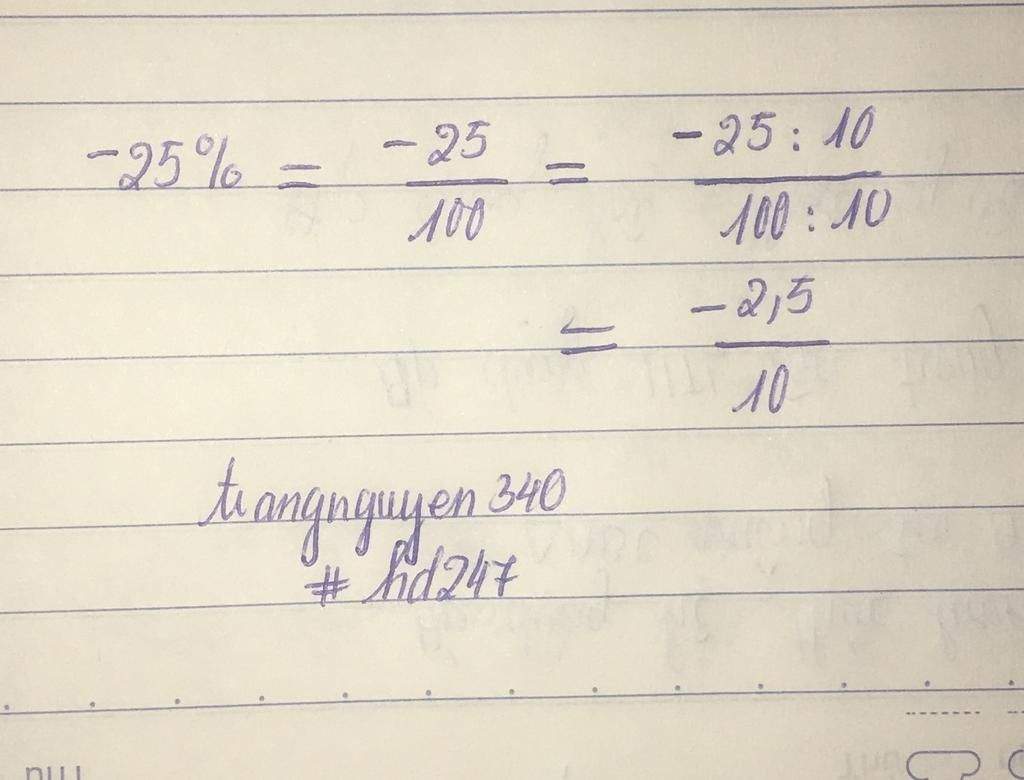 -25% = -25/100 = -25 : 10/100 : 10
= -2,5/10
trangnguyen 340
# hd247